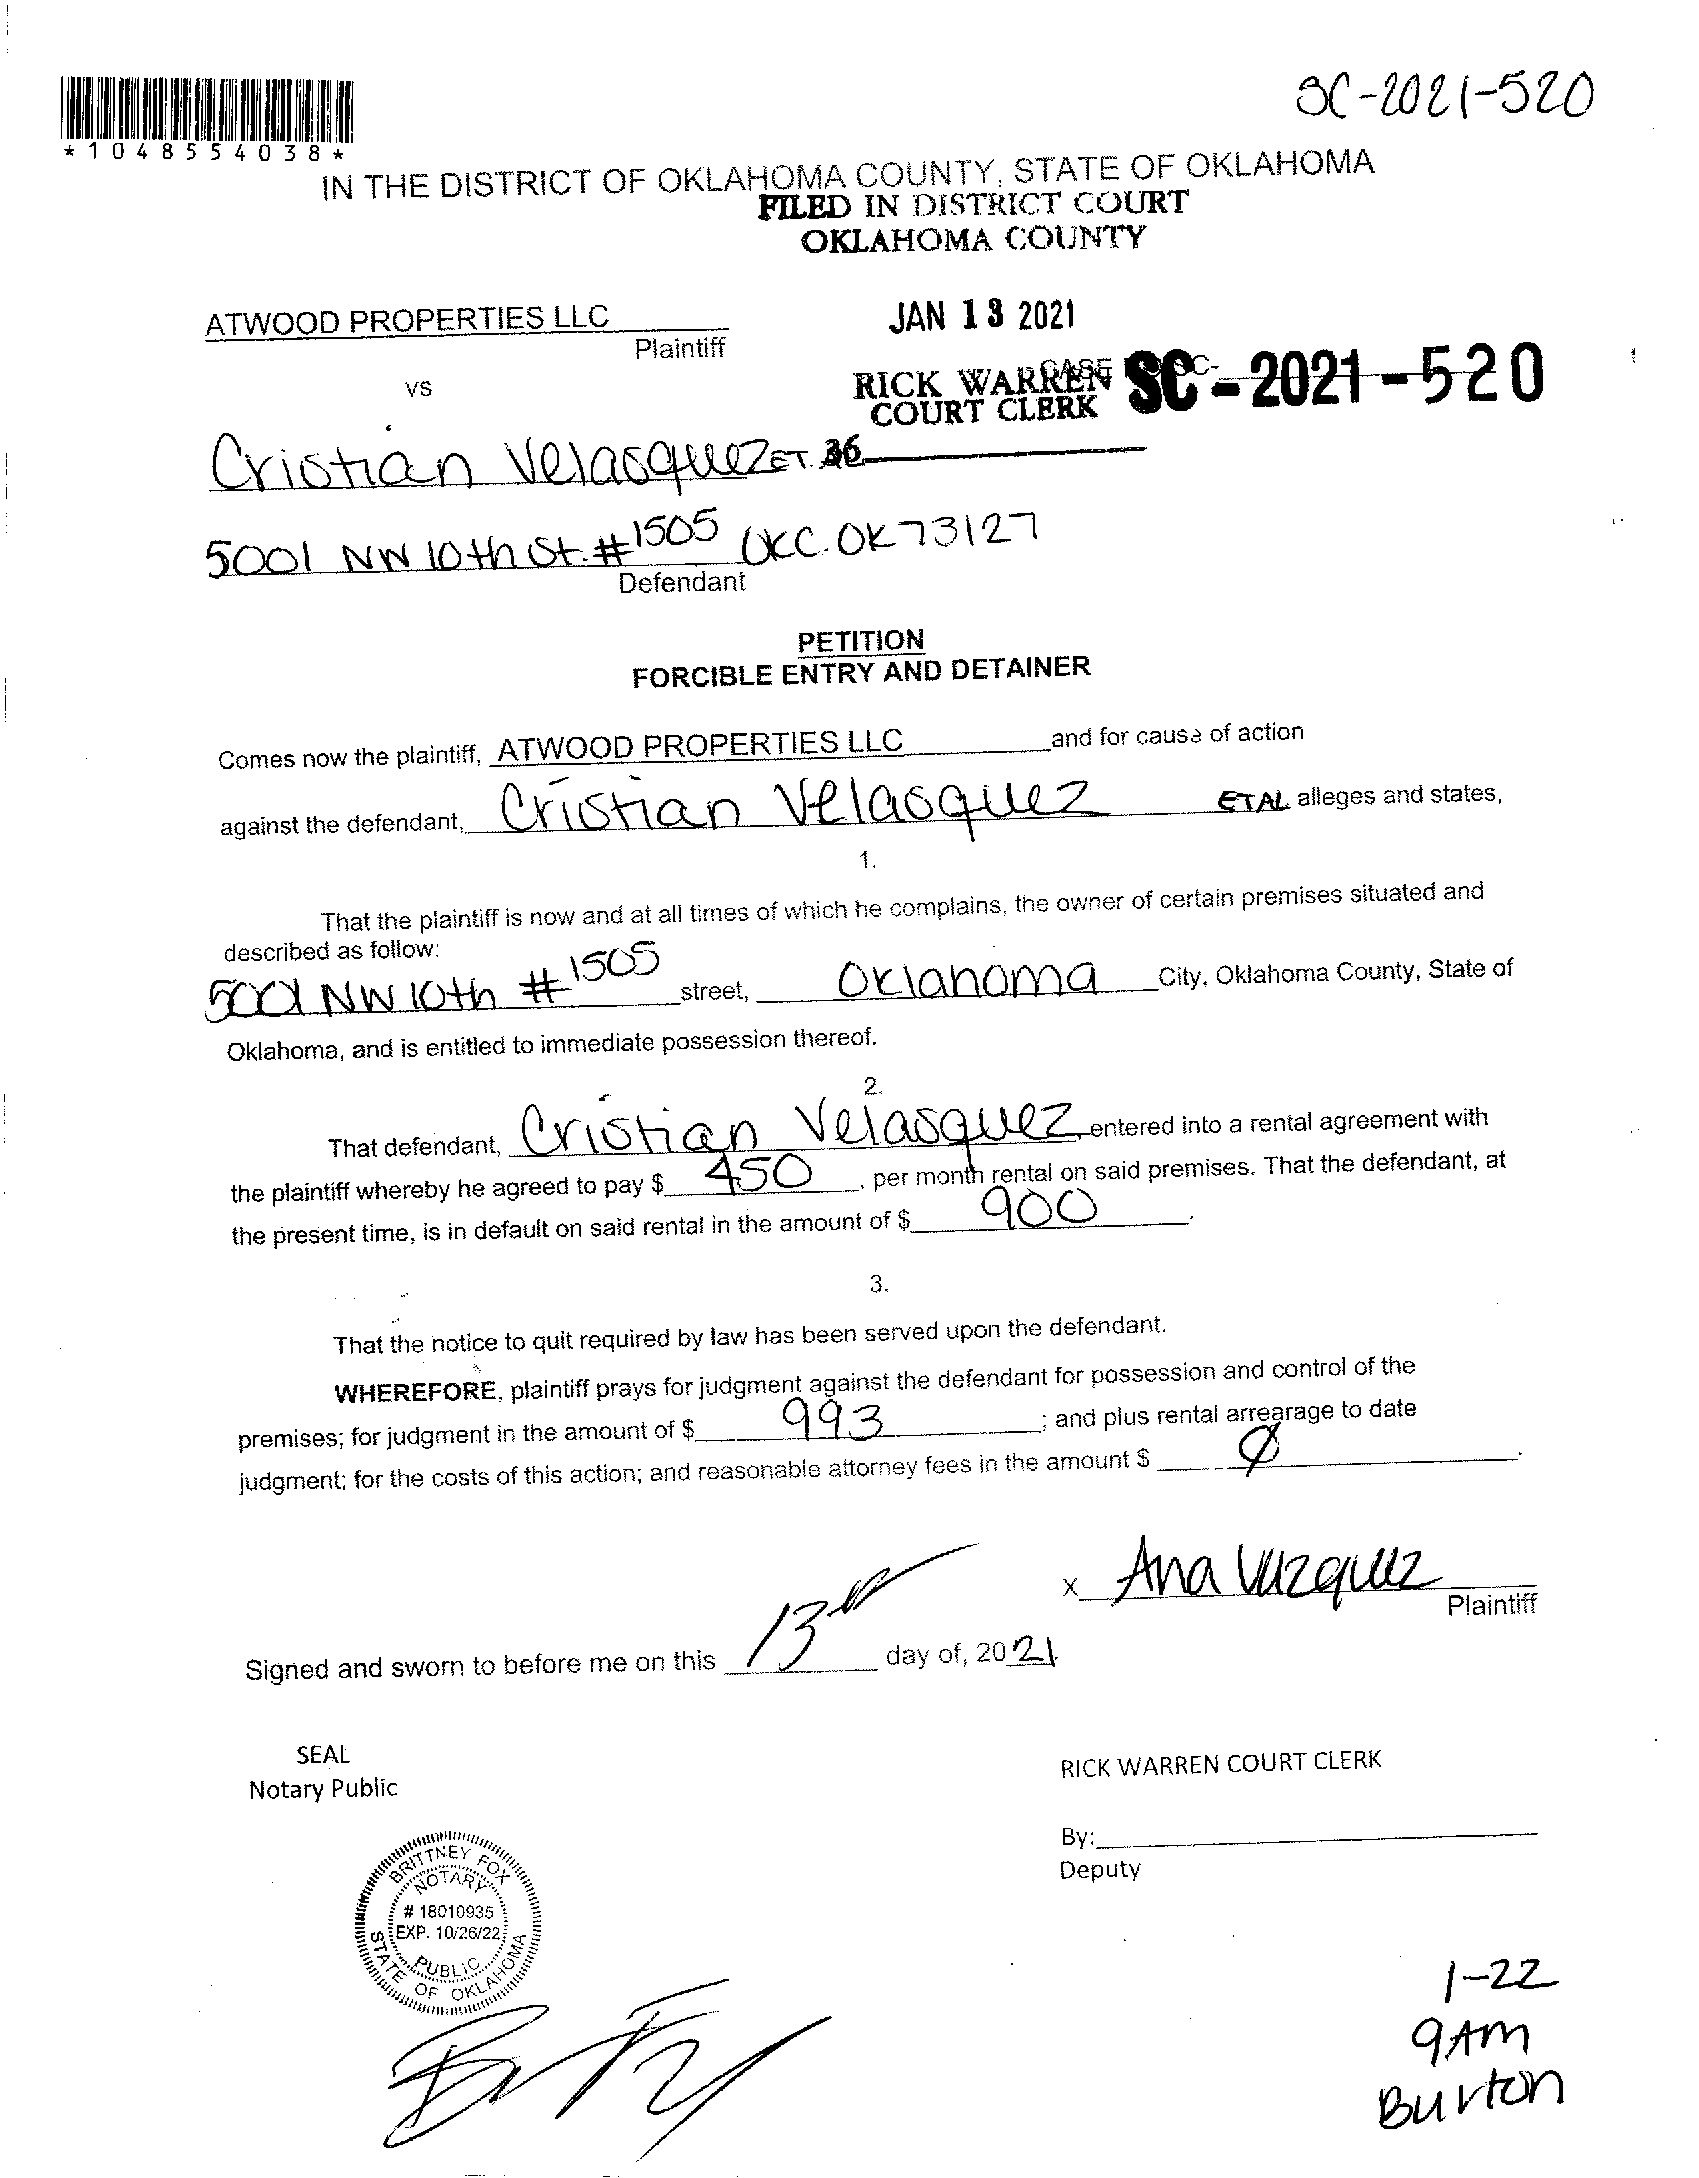 SC-2021-520
*1048554038*
IN THE DISTRICT OF OKLAHOMA COUNTY, STATE OF OKLAHOMA
FILED IN DISTRICT COURT
OKLAHOMA COUNTY
ATWOOD PROPERTIES LLC
Plaintiff
JAN 13 2021
vs
RICK WARREN
COURT CLERK
CASE
SC-2021-520
Cristian Velasquez ET. 36
5001 NW 10th St. #1505 OKC. OK 73127
Defendant
PETITION
FORCIBLE ENTRY AND DETAINER
Comes now the plaintiff, ATWOOD PROPERTIES LLC and for cause of action
against the defendant, Cristian Velasquez ETAL alleges and states,
1.
That the plaintiff is now and at all times of which he complains, the owner of certain premises situated and
described as follow:
5001 NW 10th #1505 street, Oklahoma City, Oklahoma County, State of
Oklahoma, and is entitled to immediate possession thereof.
2.
That defendant, Cristian Velasquez entered into a rental agreement with
the plaintiff whereby he agreed to pay $ 450 , per month rental on said premises. That the defendant, at
the present time, is in default on said rental in the amount of $ 900 .
3.
That the notice to quit required by law has been served upon the defendant.
WHEREFORE, plaintiff prays for judgment against the defendant for possession and control of the
premises; for judgment in the amount of $ 993 ; and plus rental arrearage to date
judgment; for the costs of this action; and reasonable attorney fees in the amount $ Ø .
x Ana Vazquez
Plaintiff
Signed and sworn to before me on this 13th day of, 2021
SEAL
Notary Public
RICK WARREN COURT CLERK
By:
Deputy
BRITTNEY FOX
NOTARY
# 18010935
EXP. 10/26/22
PUBLIC
STATE OF OKLAHOMA
1-22
9AM
Burton